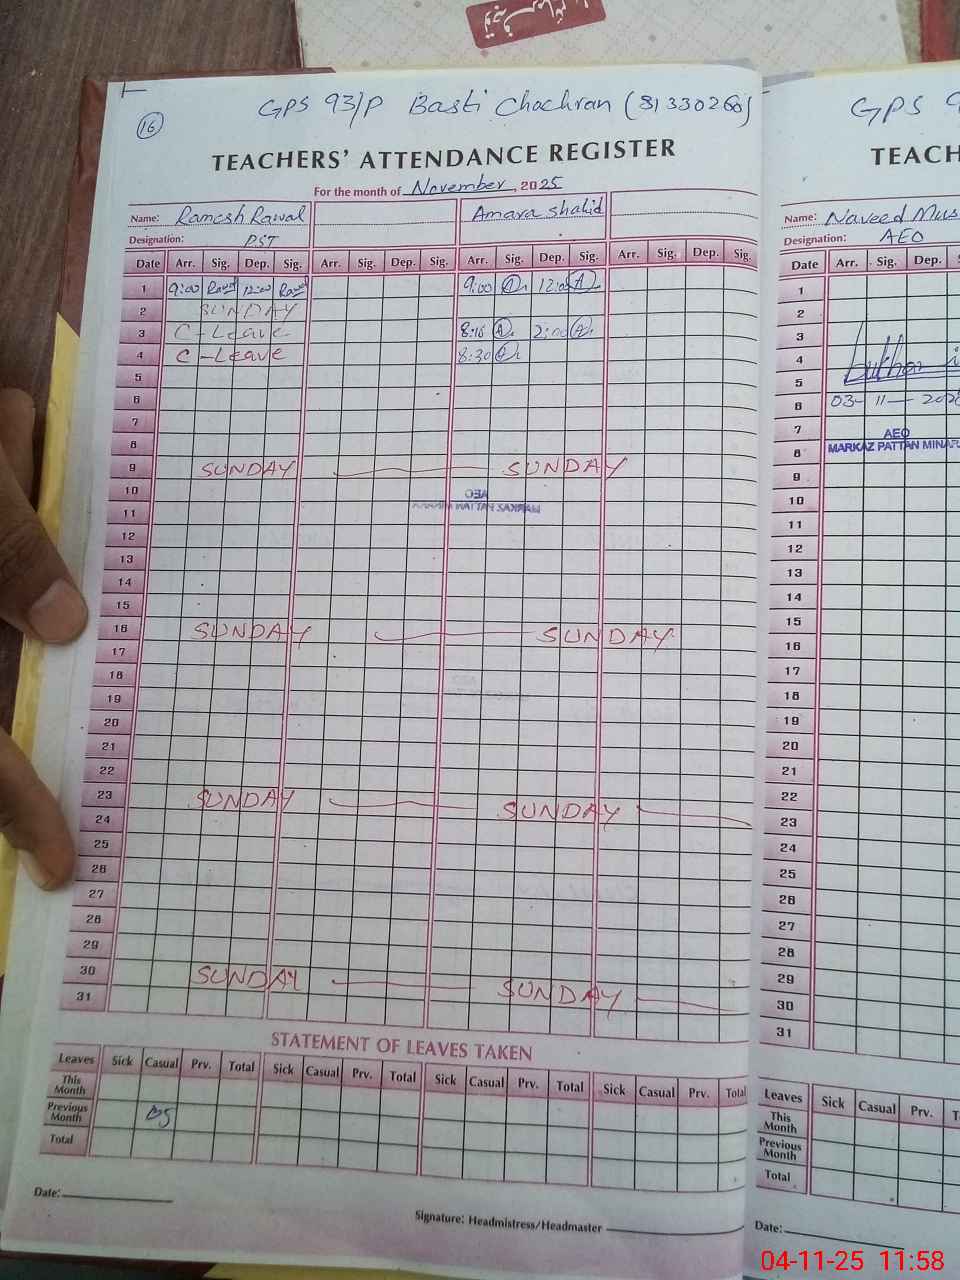 16
GPS 93/P Basti Chachran (31330260)
TEACHERS' ATTENDANCE REGISTER
For the month of November, 2025
Name: Ramesh Rawal Amara Shahid
Designation: PST
Date Arr. Sig. Dep. Sig. Arr. Sig. Dep. Sig. Arr. Sig. Dep. Sig. Arr. Sig. Dep. Sig.
1 9:00 Rawal 12:00 Rawal 9:00 A 12:00 A
2 SUNDAY
3 C-Leave 8:16 A 2:00 A
4 C-Leave 8:30 A
5
6
7
8
9 SUNDAY SUNDAY
10
11
AEO
MARKAZ PATTAN MINARA
12
13
14
15
16 SUNDAY SUNDAY
17
18
19
20
21
22
23 SUNDAY SUNDAY
24
25
26
27
28
29
30 SUNDAY SUNDAY
31
STATEMENT OF LEAVES TAKEN
Leaves Sick Casual Prv. Total Sick Casual Prv. Total Sick Casual Prv. Total Sick Casual Prv. Total
This Month
Previous Month 05
Total
Date:
Signature: Headmistress/Headmaster
GPS 9
TEACH
Name: Naveed Mus
Designation: AEO
Date Arr. Sig. Dep. S
1
2
3
4
5
6 03-11-202
7 AEO
8 MARKAZ PATTAN MINAR
9
10
11
12
13
14
15
16
17
18
19
20
21
22
23
24
25
26
27
28
29
30
31
Leaves Sick Casual Prv. T
This Month
Previous Month
Total
Date:
04-11-25 11:58